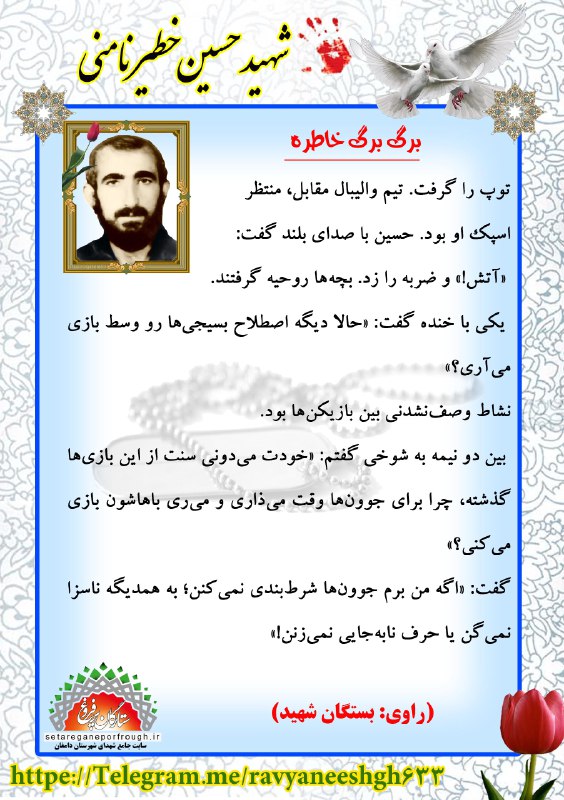 شهید حسین خطیر نامنی
برگ برگ خاطره
توپ را گرفت. تیم والیبال مقابل، منتظر
اسپک او بود. حسین با صدای بلند گفت:
«آتش!» و ضربه را زد. بچه‌ها روحیه گرفتند.
یکی با خنده گفت: «حالا دیگه اصطلاح بسیجی‌ها رو وسط بازی
می‌آری؟»
نشاط وصف‌نشدنی بین بازیکن‌ها بود.
بین دو نیمه به شوخی گفتم: «خودت می‌دونی سنت از این بازی‌ها
گذشته، چرا برای جوون‌ها وقت می‌ذاری و می‌ری باهاشون بازی
می‌کنی؟»
گفت: «اگه من برم جوون‌ها شرط‌بندی نمی‌کنن؛ به همدیگه ناسزا
نمی‌گن یا حرف نابه‌جایی نمی‌زنن!»
(راوی: بستگان شهید)
ستارگان پرفروغ
setareganeporfrough.ir
سایت جامع شهدای شهرستان دامغان
https://Telegram.me/ravyaneeshgh۶۳۳